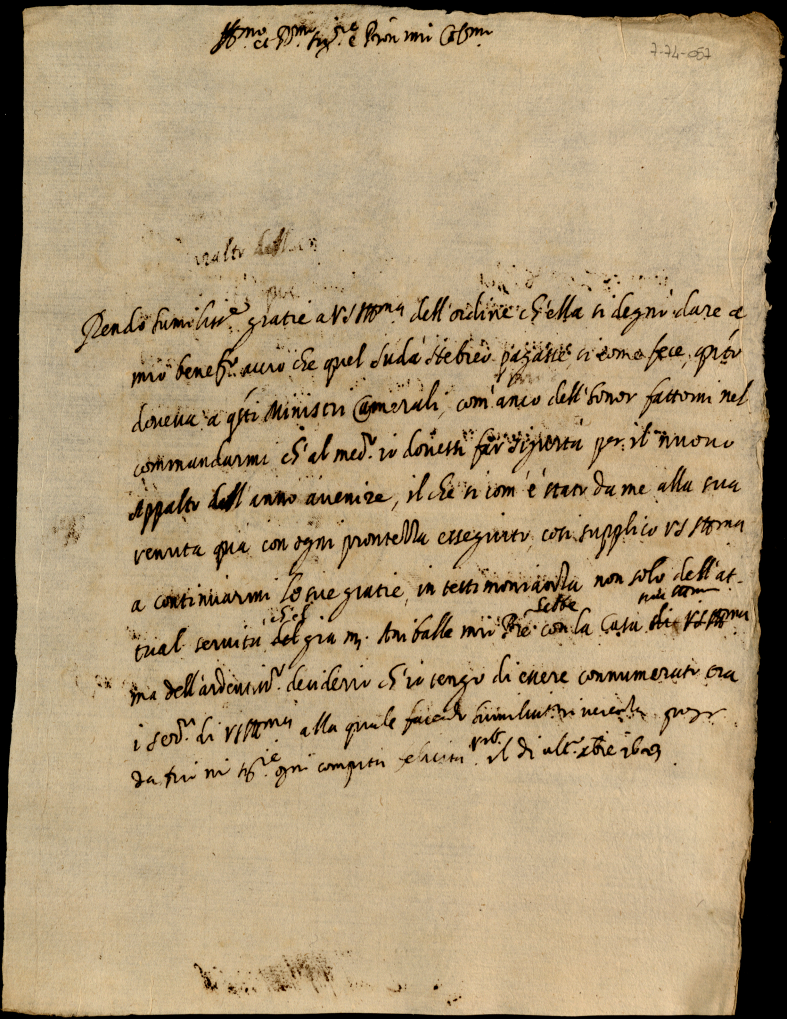 Ill.mo et R.mo Sig.re e Pron mio Col.mo
7-74-057
Rendo humiliss.e gratie a VS Ill.ma dell'ordine ch'ella si degnò dare a
mio benef.o acciò che quel Hebreo pagasse, si come fece, q.nto
doveva a q.sti Ministri Camerali, com'anco dell'honor fattomi nel
commandarmi ch'al med.o io dovessi far sigurtà per il nuovo
Appalto dell'anno avenire, il che si com'è stato da me alla sua
venuta quà con ogni prontezza esseguito, così supplico VS Ill.ma
a continuarmi le sue gratie, in testimonianza non solo dell'at-
tual servitù ch'el già m. Aniballe mio Pre hebbe con la Casa di VS Ill.ma
ma dell'ardentiss.o desiderio ch'io tengo di essere connumerato tra
i ser.ri di VS Ill.ma alla quale facendo humilissima riverenza prego
da ogni compita felicità il di ult.o xbre 1609